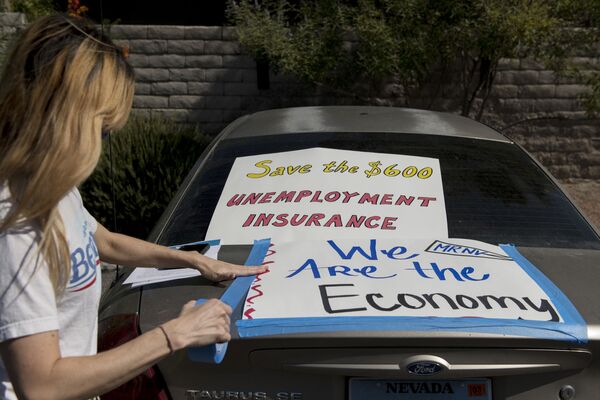 Save the $600
UNEMPLOYMENT
INSURANCE
MRNV
We
Are the
Economy
Ford
TAURUS SE
NEVADA